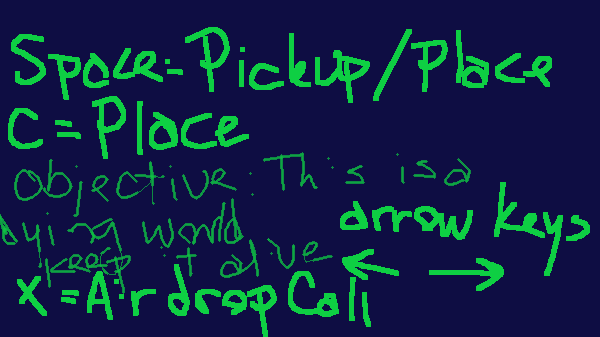 Space = Pickup/Place
C = Place
objective: This is a
dying world
keep it alive
arrow keys
← →
X = Airdrop Call